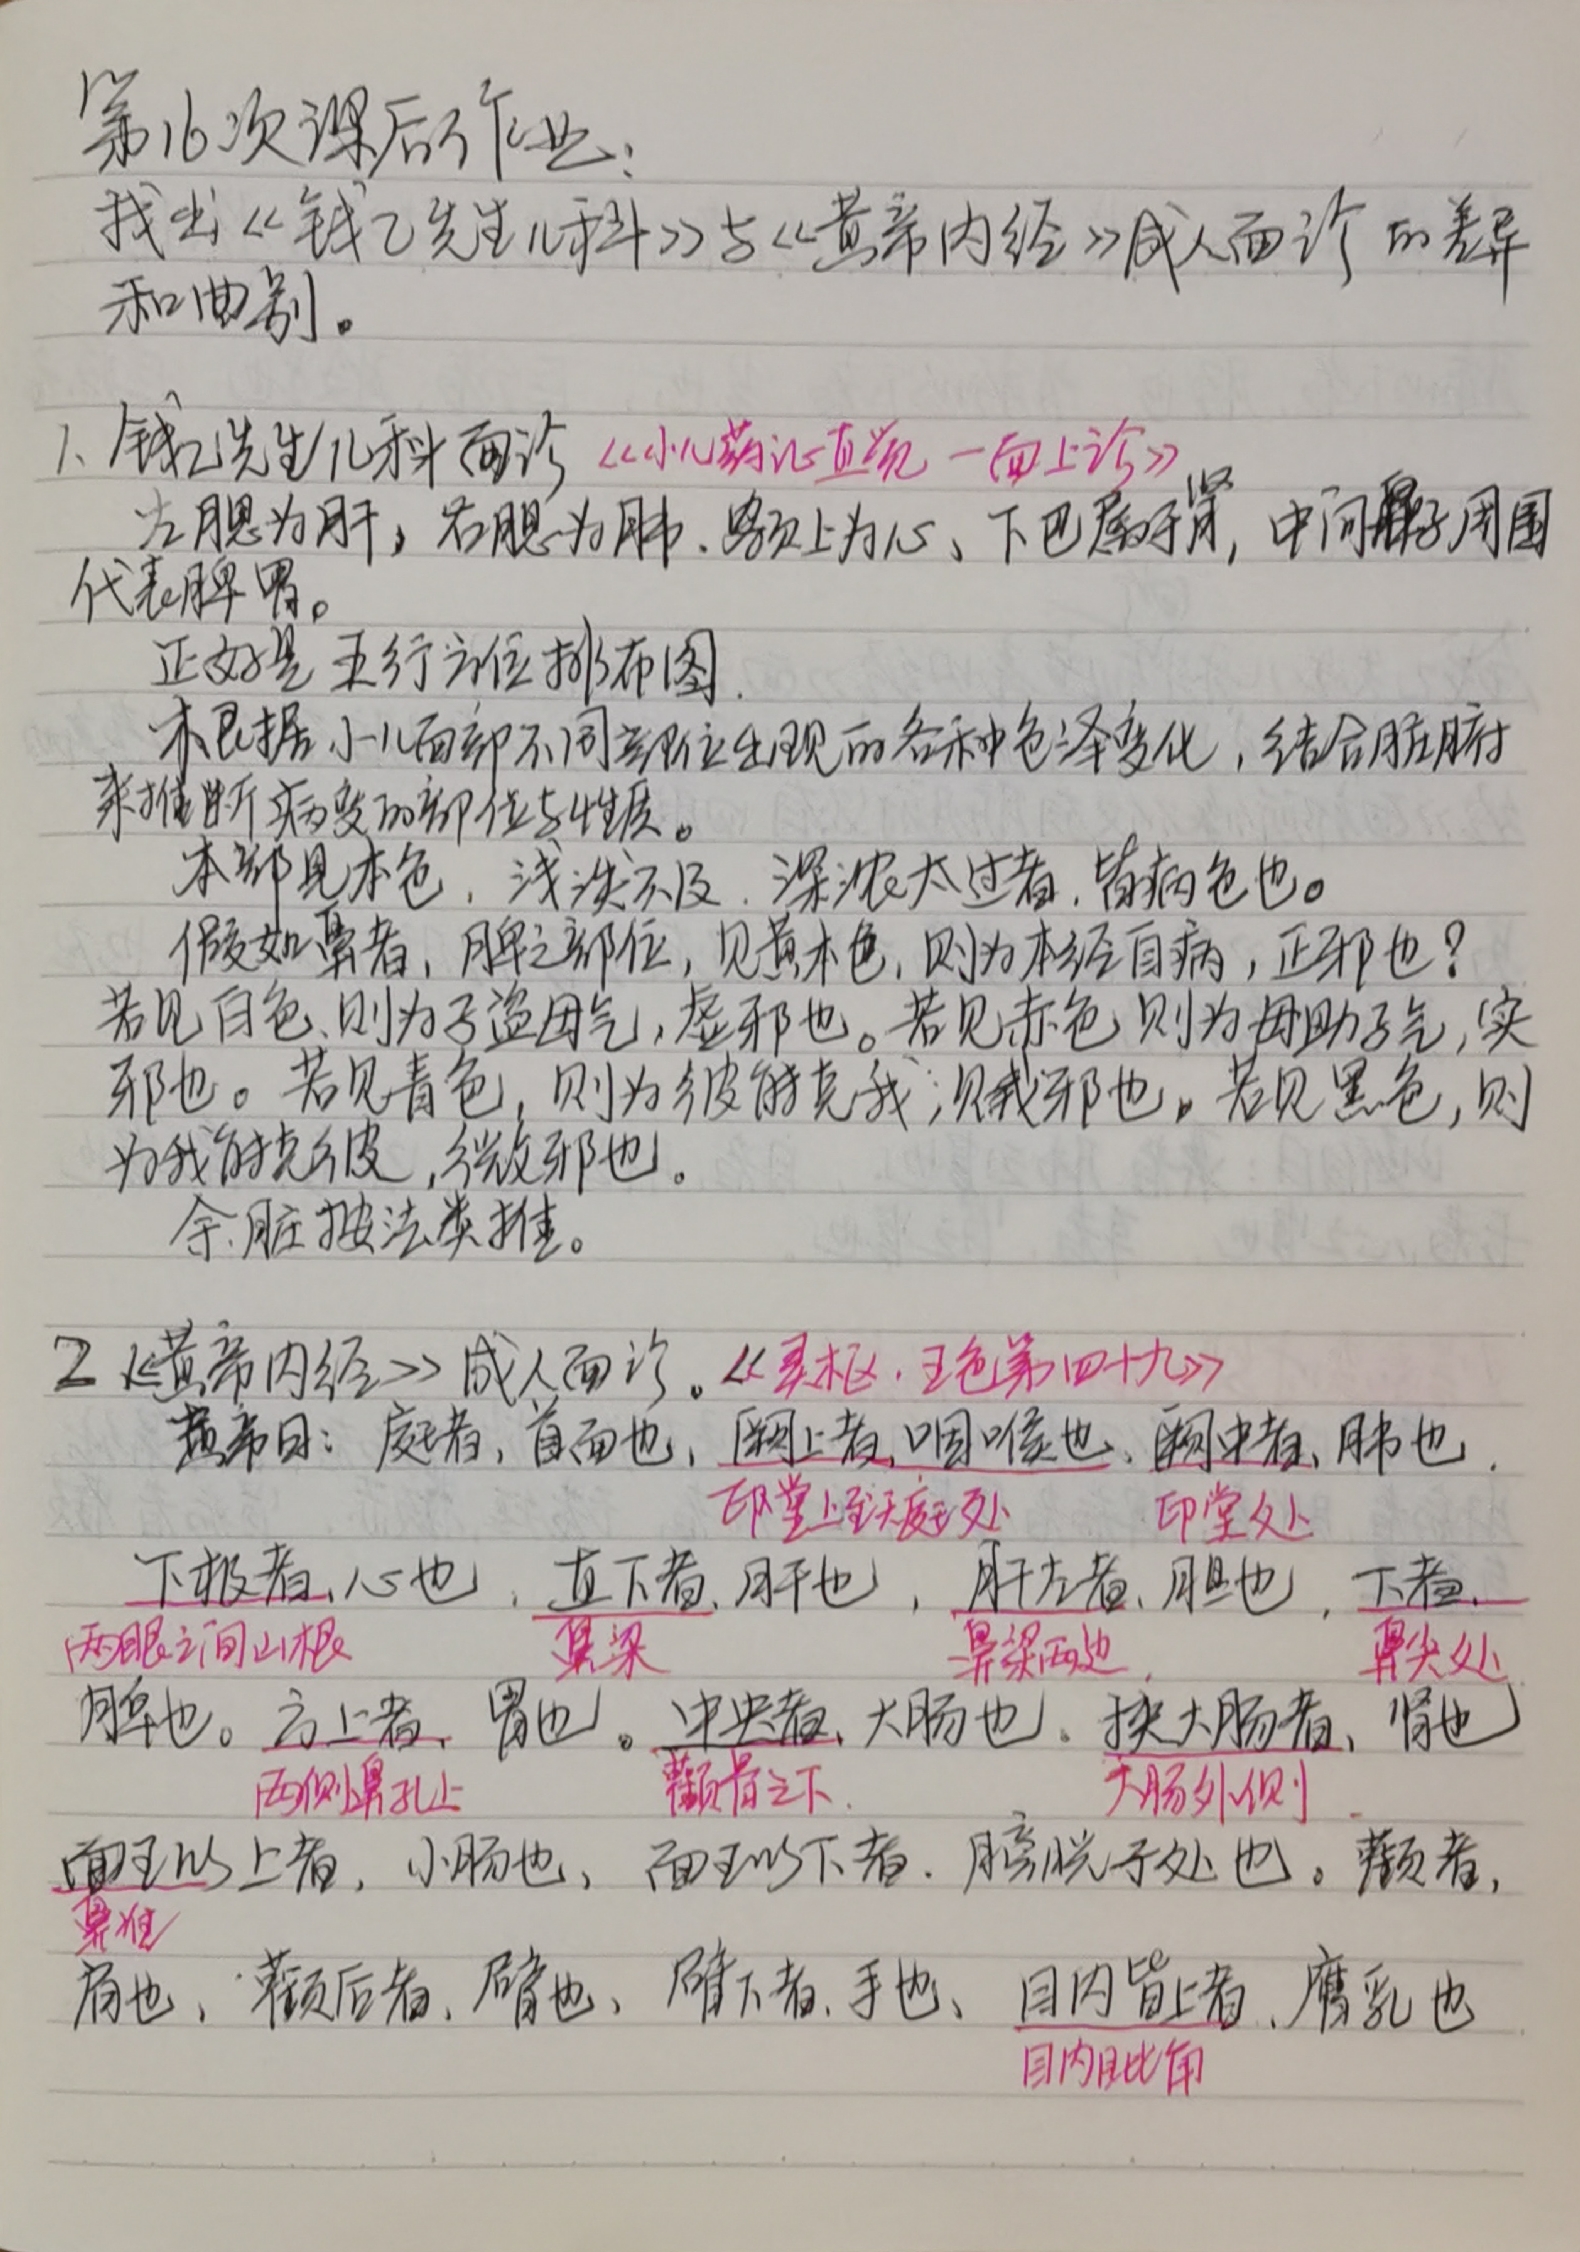 第16次课后作业:
找出《钱乙先生儿科》与《黄帝内经》成人面诊的差异
和曲别。
1、钱乙先生儿科面诊《小儿药证直诀-面上诊》
左腮为肝,右腮为肺、额上为心、下巴属于肾,中间鼻子周围
代表脾胃。
正好是五行方位排布图.
根据小儿面部不同部位出现的各种色泽变化,结合脏腑
来推断病变的部位与性质。
本部见本色,浅淡不及、深浓太过者,皆病色也。
假如鼻者,脾之部位,见黄本色,则为本经自病,正邪也?
若见白色、则为子盗母气,虚邪也。若见赤色则为母助子气,实
邪也。若见青色,则为彼能克我;贼邪也。若见黑色,则
为我能克彼,微邪也。
余脏按法类推。
2《黄帝内经》成人面诊。《灵枢·五色第四十九》
黄帝曰:庭者,首面也,阙上者、咽喉也、阙中者、肺也.
印堂上至天庭处 印堂处
下极者、心也,直下者、肝也,肝左者、胆也,下者、
两眼之间山根 鼻梁 鼻梁两边 鼻尖处
脾也。方上者、胃也。中央者、大肠也.挟大肠者、肾也
两侧鼻孔上 颧骨之下. 大肠外侧
面王以上者,小肠也、面王以下者.膀胱子处也。颧者,
鼻准
肩也、颧后者、臂也、臂下者、手也、目内眥上者、膺乳也
目内眦角